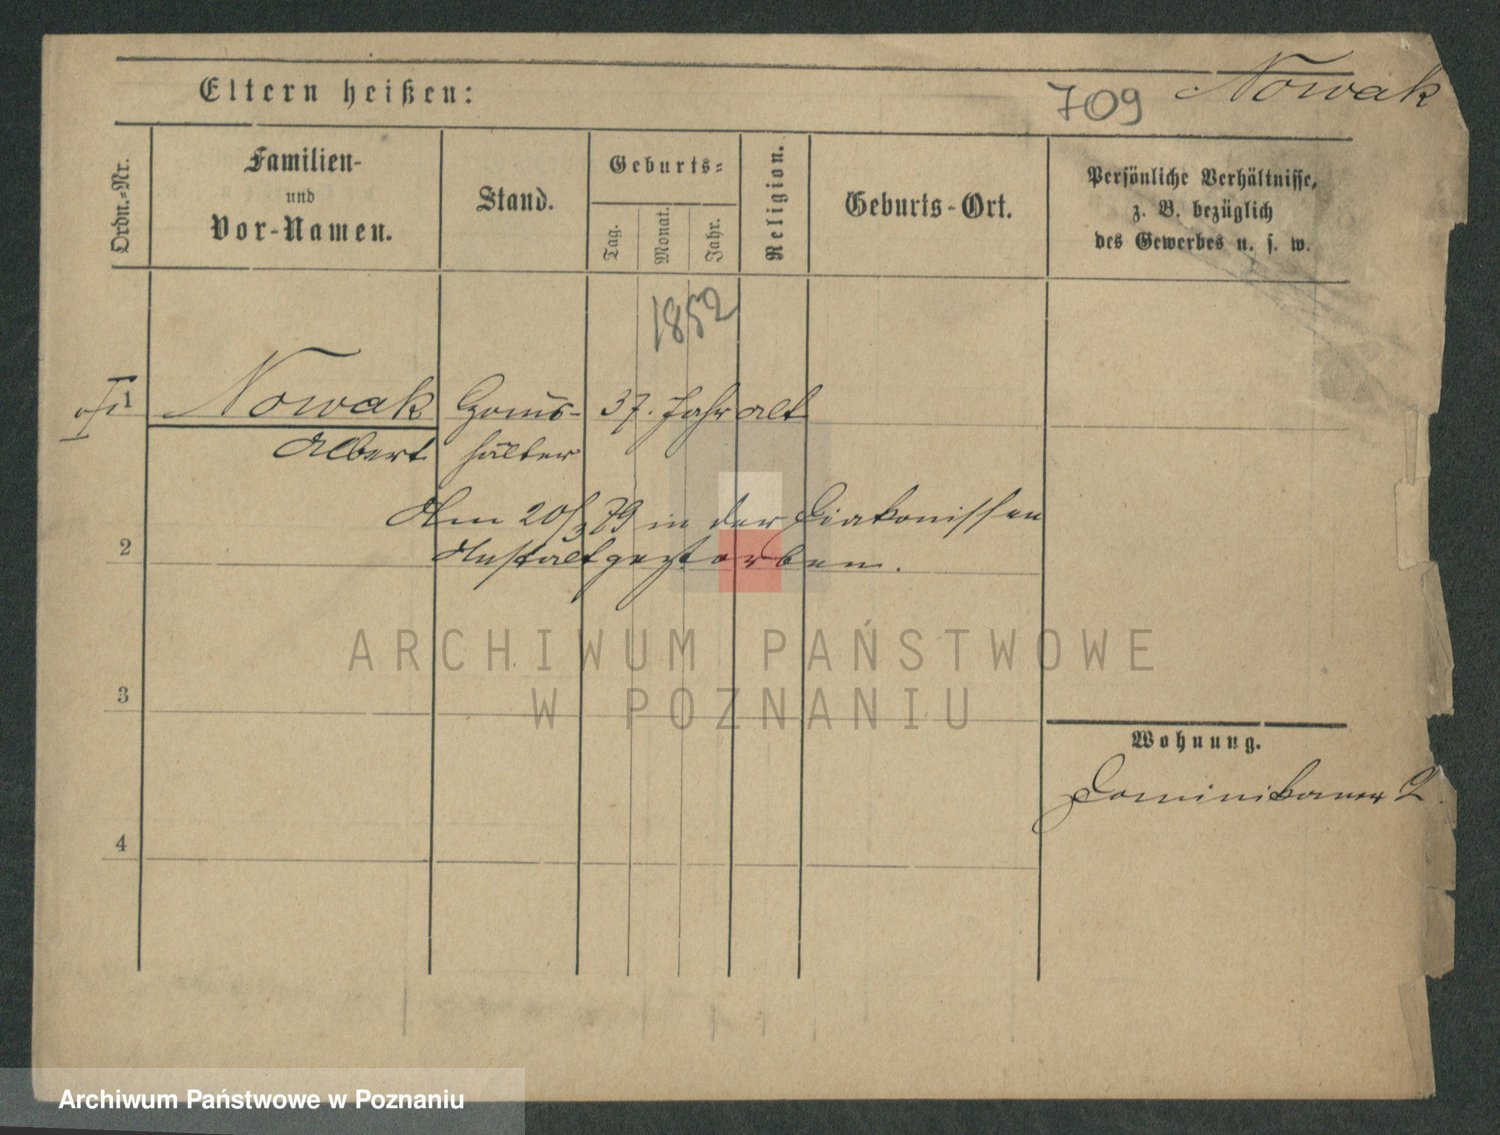 Eltern heißen:
709
Nowak
Ordn.-Nr.
Familien-
und
Vor-Namen.
Stand.
Geburts-
Tag.
Monat.
Jahr.
Religion.
Geburts-Ort.
Persönliche Verhältnisse,
z. B. bezüglich
des Gewerbes u. s. w.
1852
1
Nowak
Haus-
37. Jahr alt
Albert
hälter
Am 20/3 89 in der Diakonissen
Anstalt gestorben.
2
3
4
Wohnung.
Dominikaner 2.
ARCHIWUM PAŃSTWOWE
W POZNANIU
Archiwum Państwowe w Poznaniu